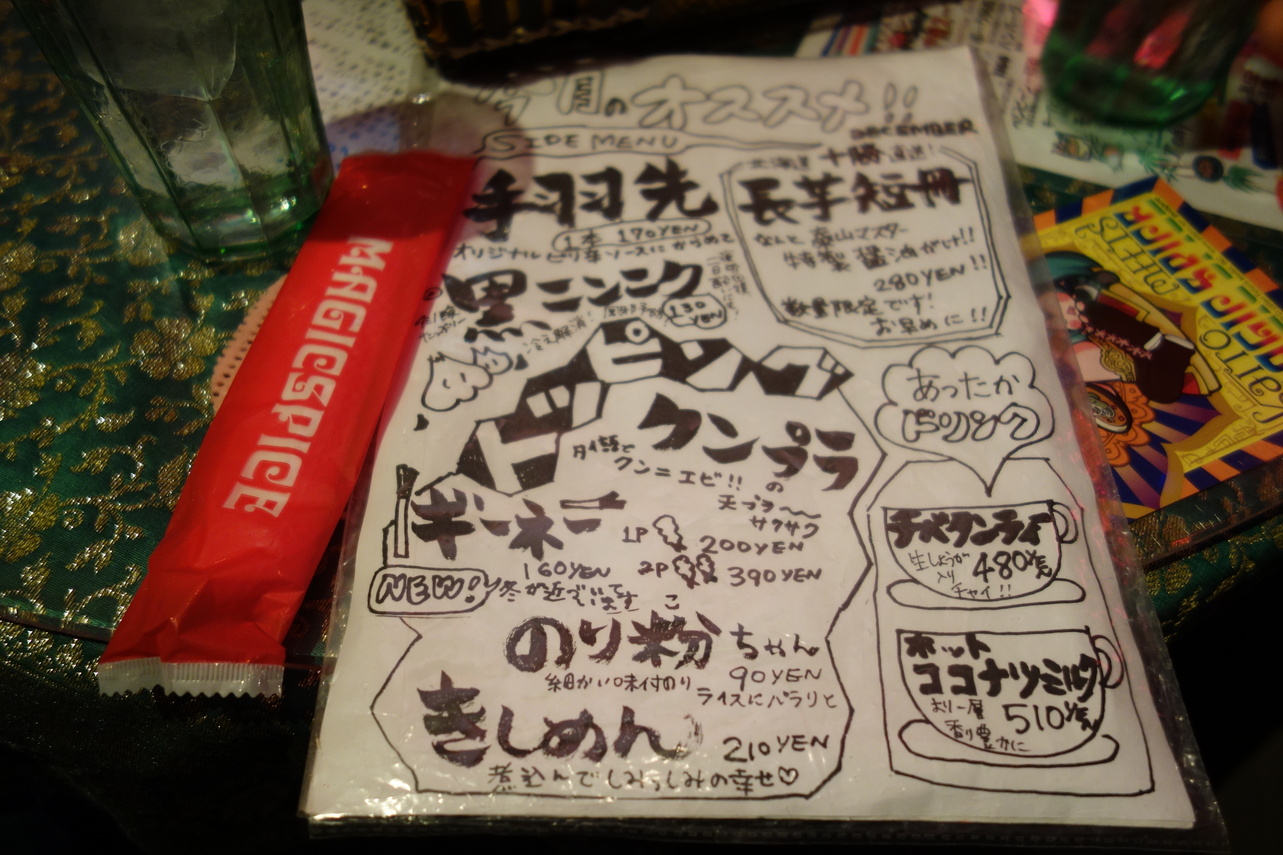 今月のオススメ!!
DECEMBER
SIDE MENU
手羽先
1本 170YEN
オリジナルピリ辛ソースにからめて
黒ニンニク
130YEN
冷え解消!
北海道 十勝直送!
長芋短冊
なんと 泰山マスター
特製 醤油がけ!!
280YEN!!
数量限定です!
お早めに!!
トッピング
クンプラ
タイ語で
クン=エビ!! の
天プラ〜
サクサク
1P 200YEN
2P 390YEN
ギーネー
160YEN
NEW!
冬が近づいてます
のり粉ちゃん
こ
90YEN
細かい味付のり
ライスにパラリと
きしめん
210YEN
煮込んでしみうしみの幸せ♡
あったか
ドリンク
チベタンティ
生しょうが
入り
チャイ!!
480YEN
ホット
ココナツミルク
より一層
香り豊かに
510YEN
MAGICSPICE